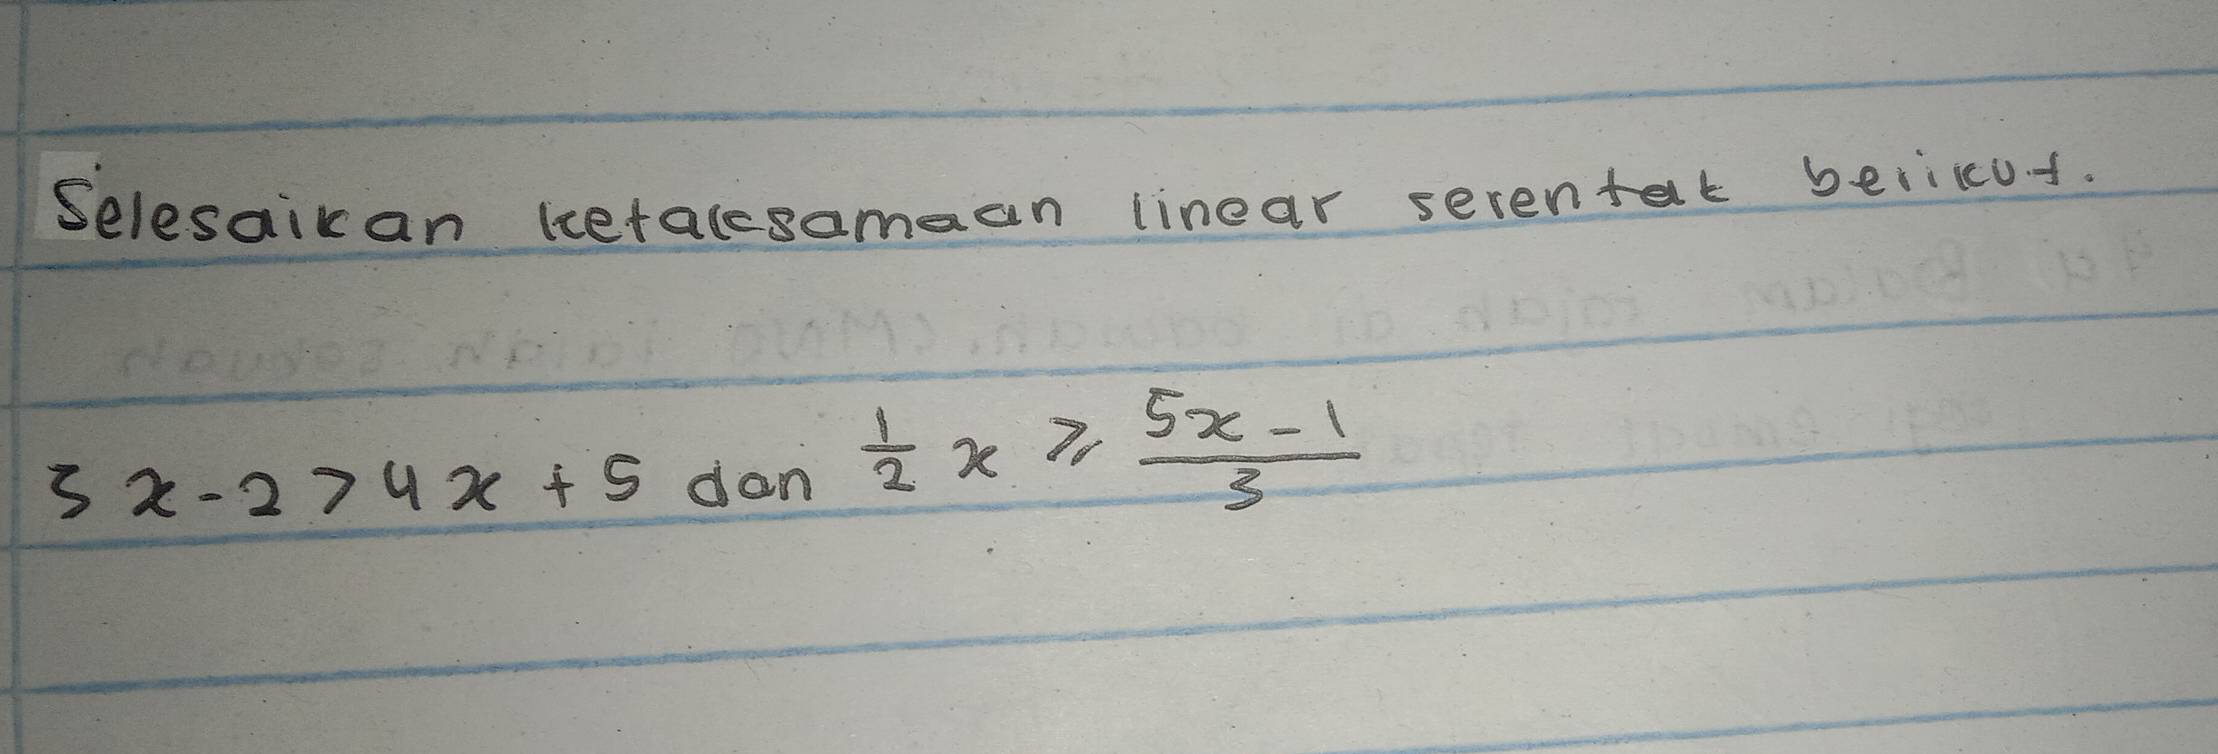 Selesaikan ketaksamaan linear serentak berikut.
3x - 2 > 4x + 5 dan 1/2 x ⩾ (5x - 1)/3